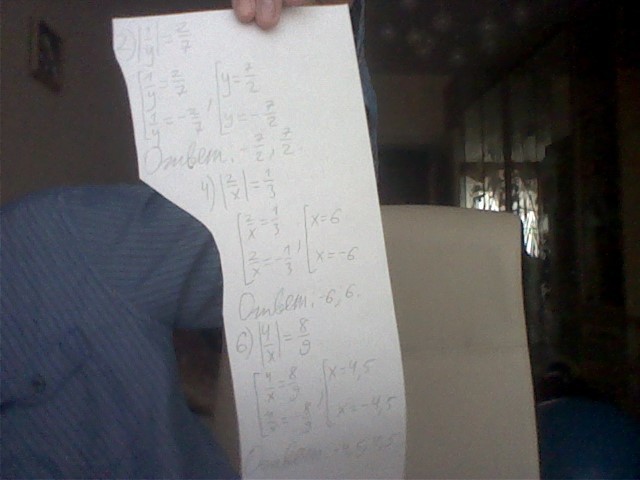 2) |1/y| = 2/7
[ 1/y = 2/7
1/y = -2/7 , [ y = 7/2
y = -7/2
Ответ: -7/2, 7/2.
4) |2/x| = 1/3
[ 2/x = 1/3
2/x = -1/3 , [ x = 6
x = -6
Ответ: -6, 6.
6) |4/x| = 8/9
[ 4/x = 8/9
4/x = -8/9 , [ x = 4,5
x = -4,5
Ответ: -4,5; 4,5